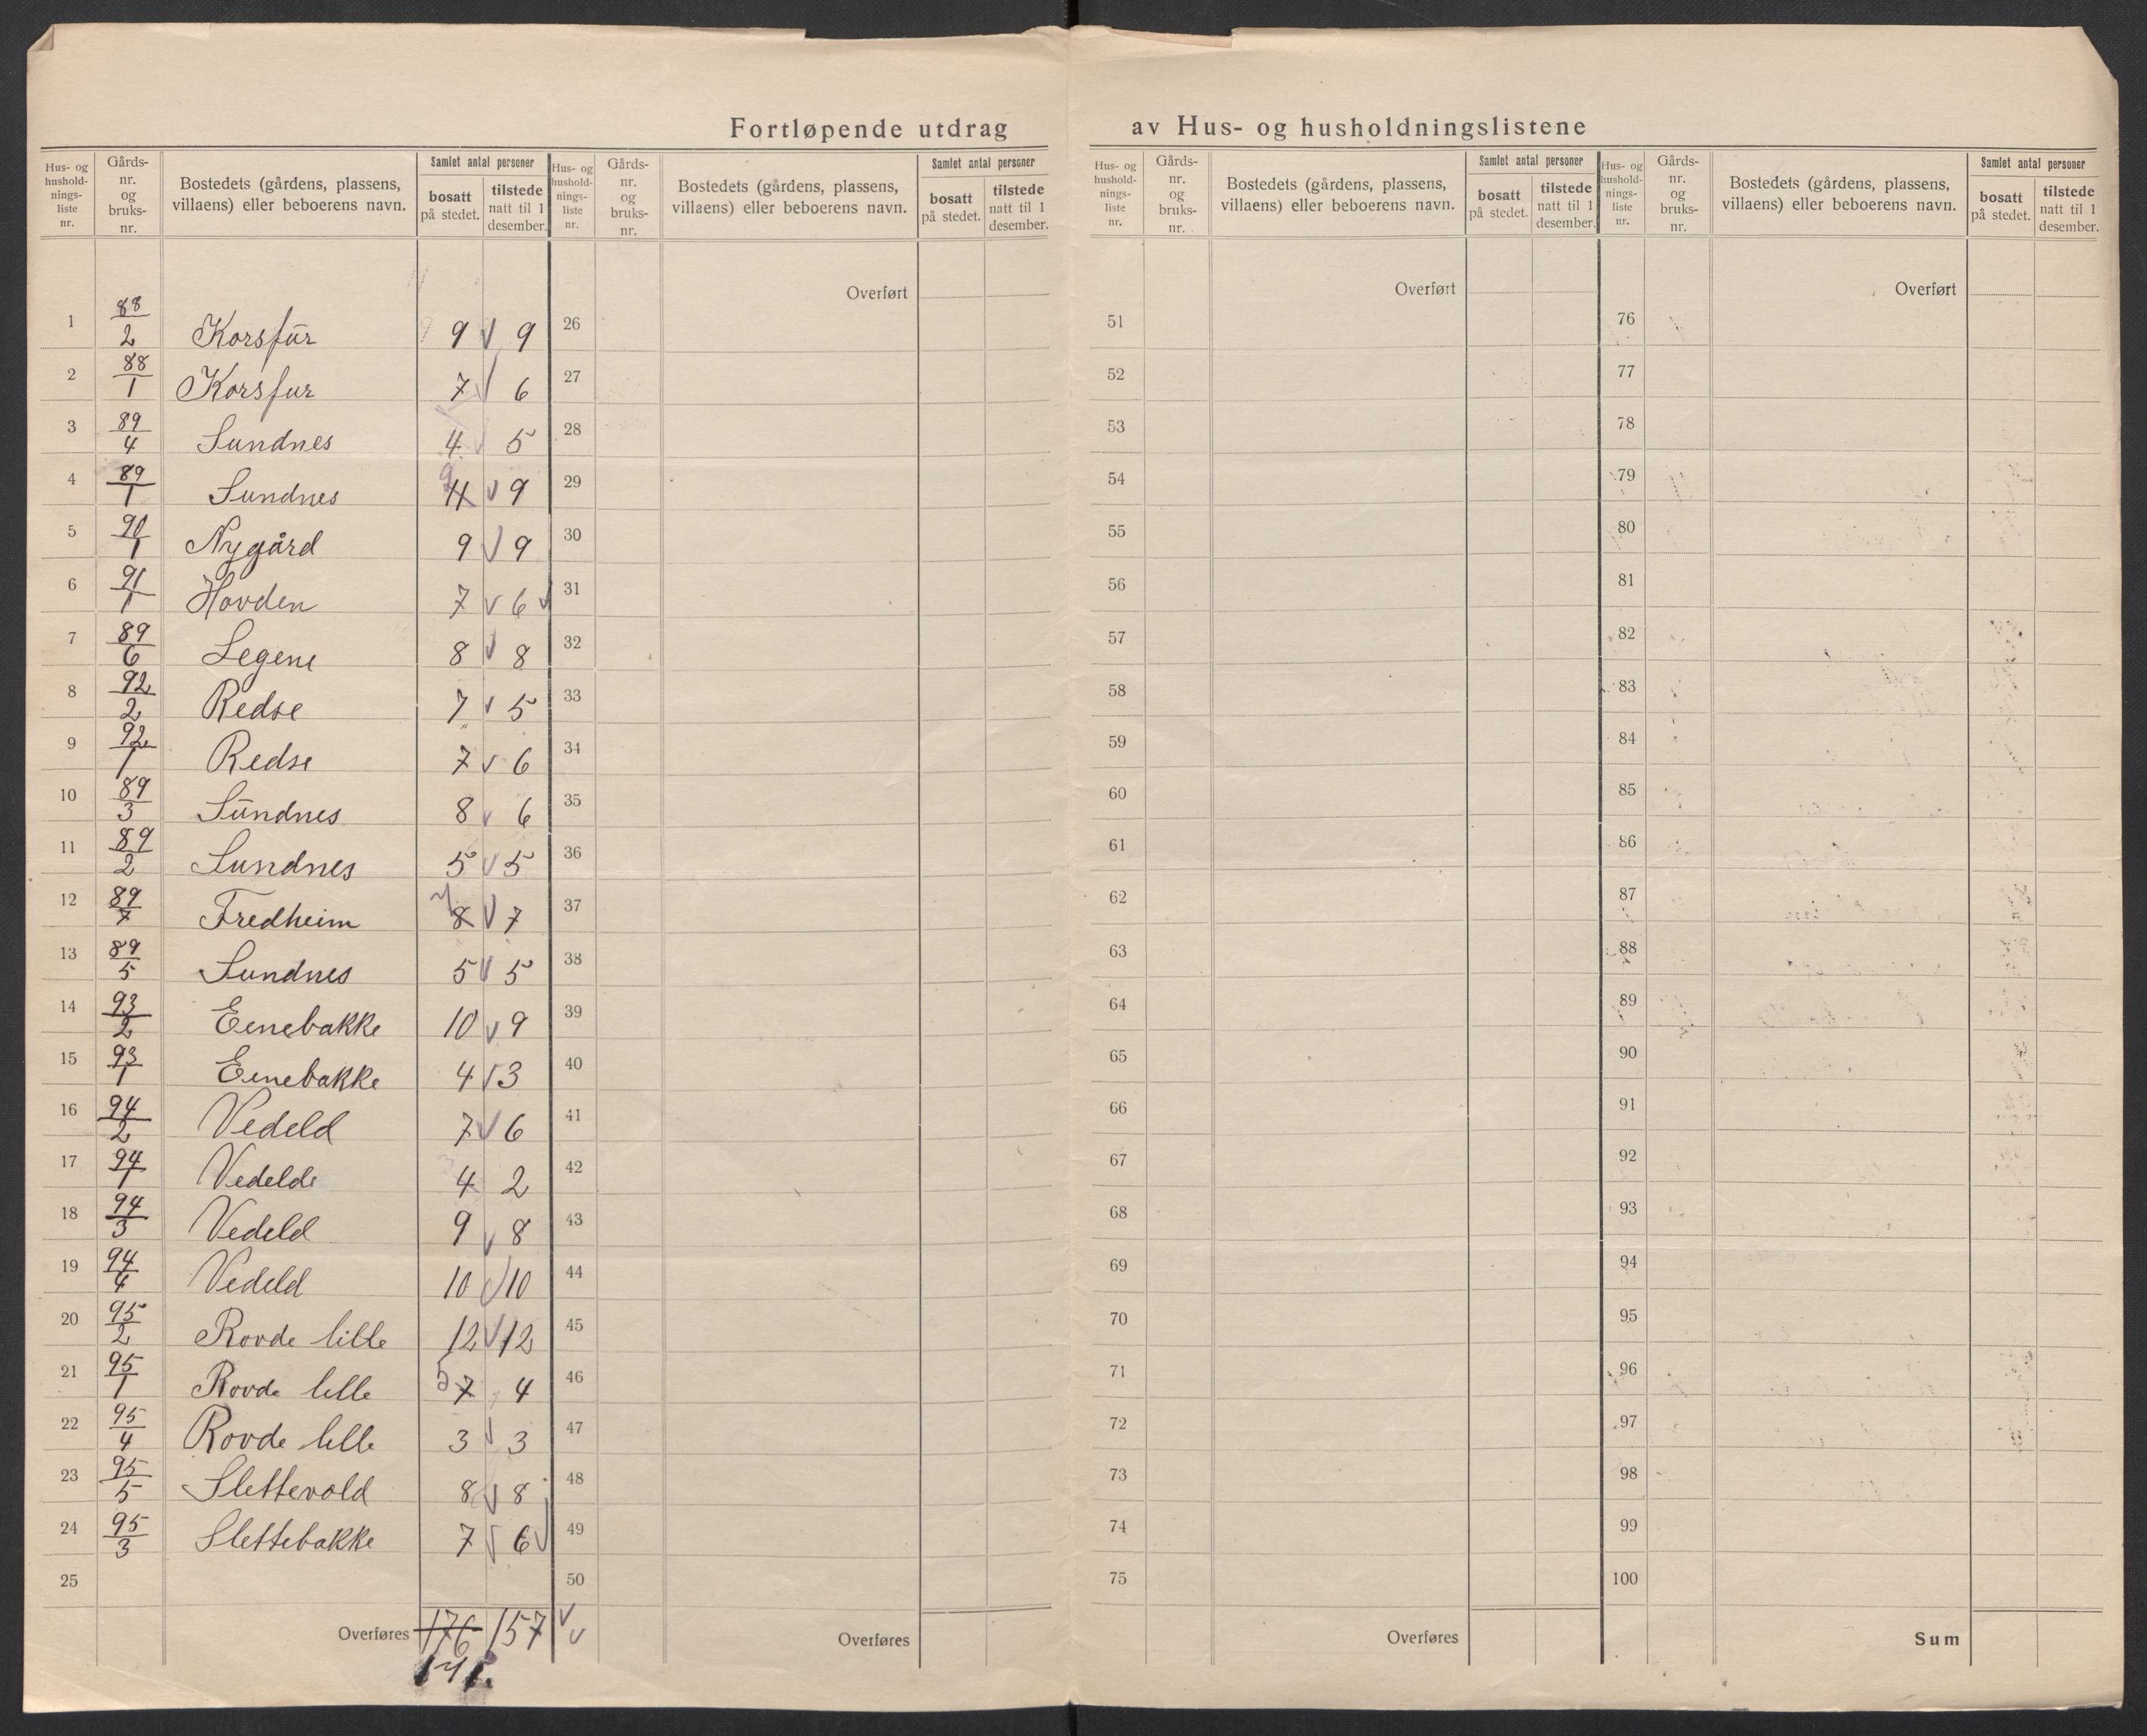 Fortløpende utdrag av Hus- og husholdningslistene
Hus- og hushold-nings-liste nr. | Gårds-nr. og bruks-nr. | Bostedets (gårdens, plassens, villaens) eller beboerens navn. | Samlet antal personer | bosatt på stedet. | tilstede natt til 1 desember.
1 88/2 Korsfur 9 9
2 88/1 Korsfur 7 6
3 89/4 Sundnes 4 5
4 89/1 Sundnes 9 9
5 90/1 Nygård 9 9
6 91/1 Hovden 7 6
7 89/6 Legene 8 8
8 92/2 Redse 7 5
9 92/1 Redse 7 6
10 89/3 Sundnes 8 6
11 89/2 Sundnes 5 5
12 89/7 Fredheim 7 8 7
13 89/5 Sundnes 5 5
14 93/2 Eenebakke 10 9
15 93/1 Eenebakke 4 3
16 94/2 Vedeld 7 6
17 94/1 Vedelde 3 4 2
18 94/3 Vedeld 9 8
19 94/4 Vedeld 10 10
20 95/2 Rovde lille 12 12
21 95/1 Rovde lille 5 7 4
22 95/4 Rovde lille 3 3
23 95/5 Slettevold 8 8
24 95/3 Slettebakke 7 6
25
Overføres 176 157
Hus- og hushold-nings-liste nr. | Gårds-nr. og bruks-nr. | Bostedets (gårdens, plassens, villaens) eller beboerens navn. | Samlet antal personer | bosatt på stedet. | tilstede natt til 1 desember.
Overført
26
27
28
29
30
31
32
33
34
35
36
37
38
39
40
41
42
43
44
45
46
47
48
49
50
Overføres
Hus- og hushold-nings-liste nr. | Gårds-nr. og bruks-nr. | Bostedets (gårdens, plassens, villaens) eller beboerens navn. | Samlet antal personer | bosatt på stedet. | tilstede natt til 1 desember.
Overført
51
52
53
54
55
56
57
58
59
60
61
62
63
64
65
66
67
68
69
70
71
72
73
74
75
Overføres
Hus- og hushold-nings-liste nr. | Gårds-nr. og bruks-nr. | Bostedets (gårdens, plassens, villaens) eller beboerens navn. | Samlet antal personer | bosatt på stedet. | tilstede natt til 1 desember.
Overført
76
77
78
79
80
81
82
83
84
85
86
87
88
89
90
91
92
93
94
95
96
97
98
99
100
Sum